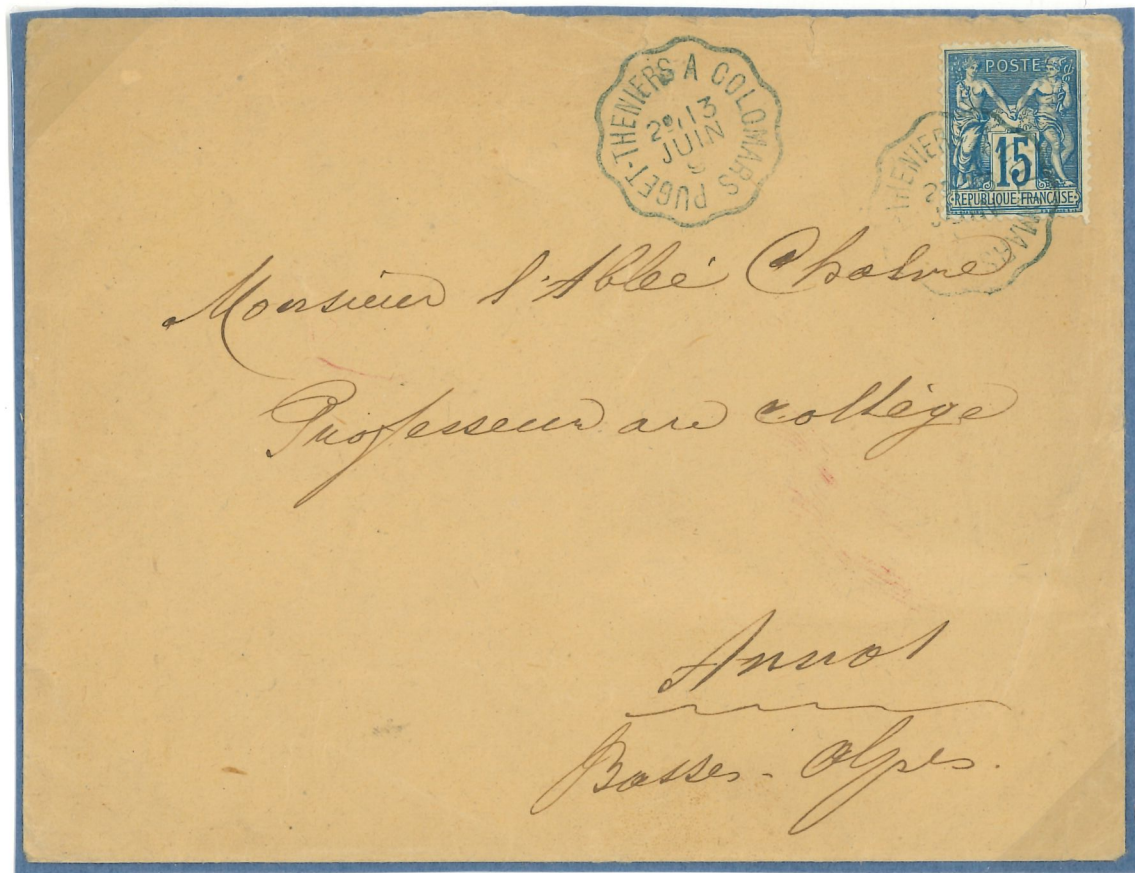 PUGET-THENIERS A COLOMARS
2º 13
JUIN
9
POSTE
15
RÉPUBLIQUE FRANÇAISE
THENIER MARS
Monsieur l'Abbé
Professeur au collège
Annot
Basses-Alpes.